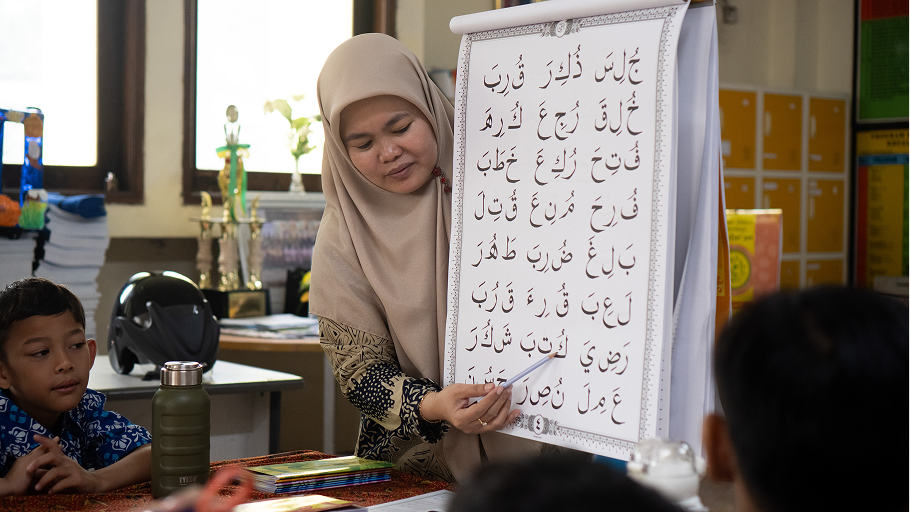 جُلِسَ ذُكِرَ قُرِبَ
خُلِقَ رُجِعَ كُرِهَ
فُتِحَ رُكِعَ خَطَبَ
فُرِحَ مُنِعَ قُتِلَ
بَلِغَ ضُرِبَ طَهُرَ
لَعِبَ قُرِءَ قَرُبَ
رَضِيَ كُتِبَ شَكُرَ
عَمِلَ نُصِرَ
٤